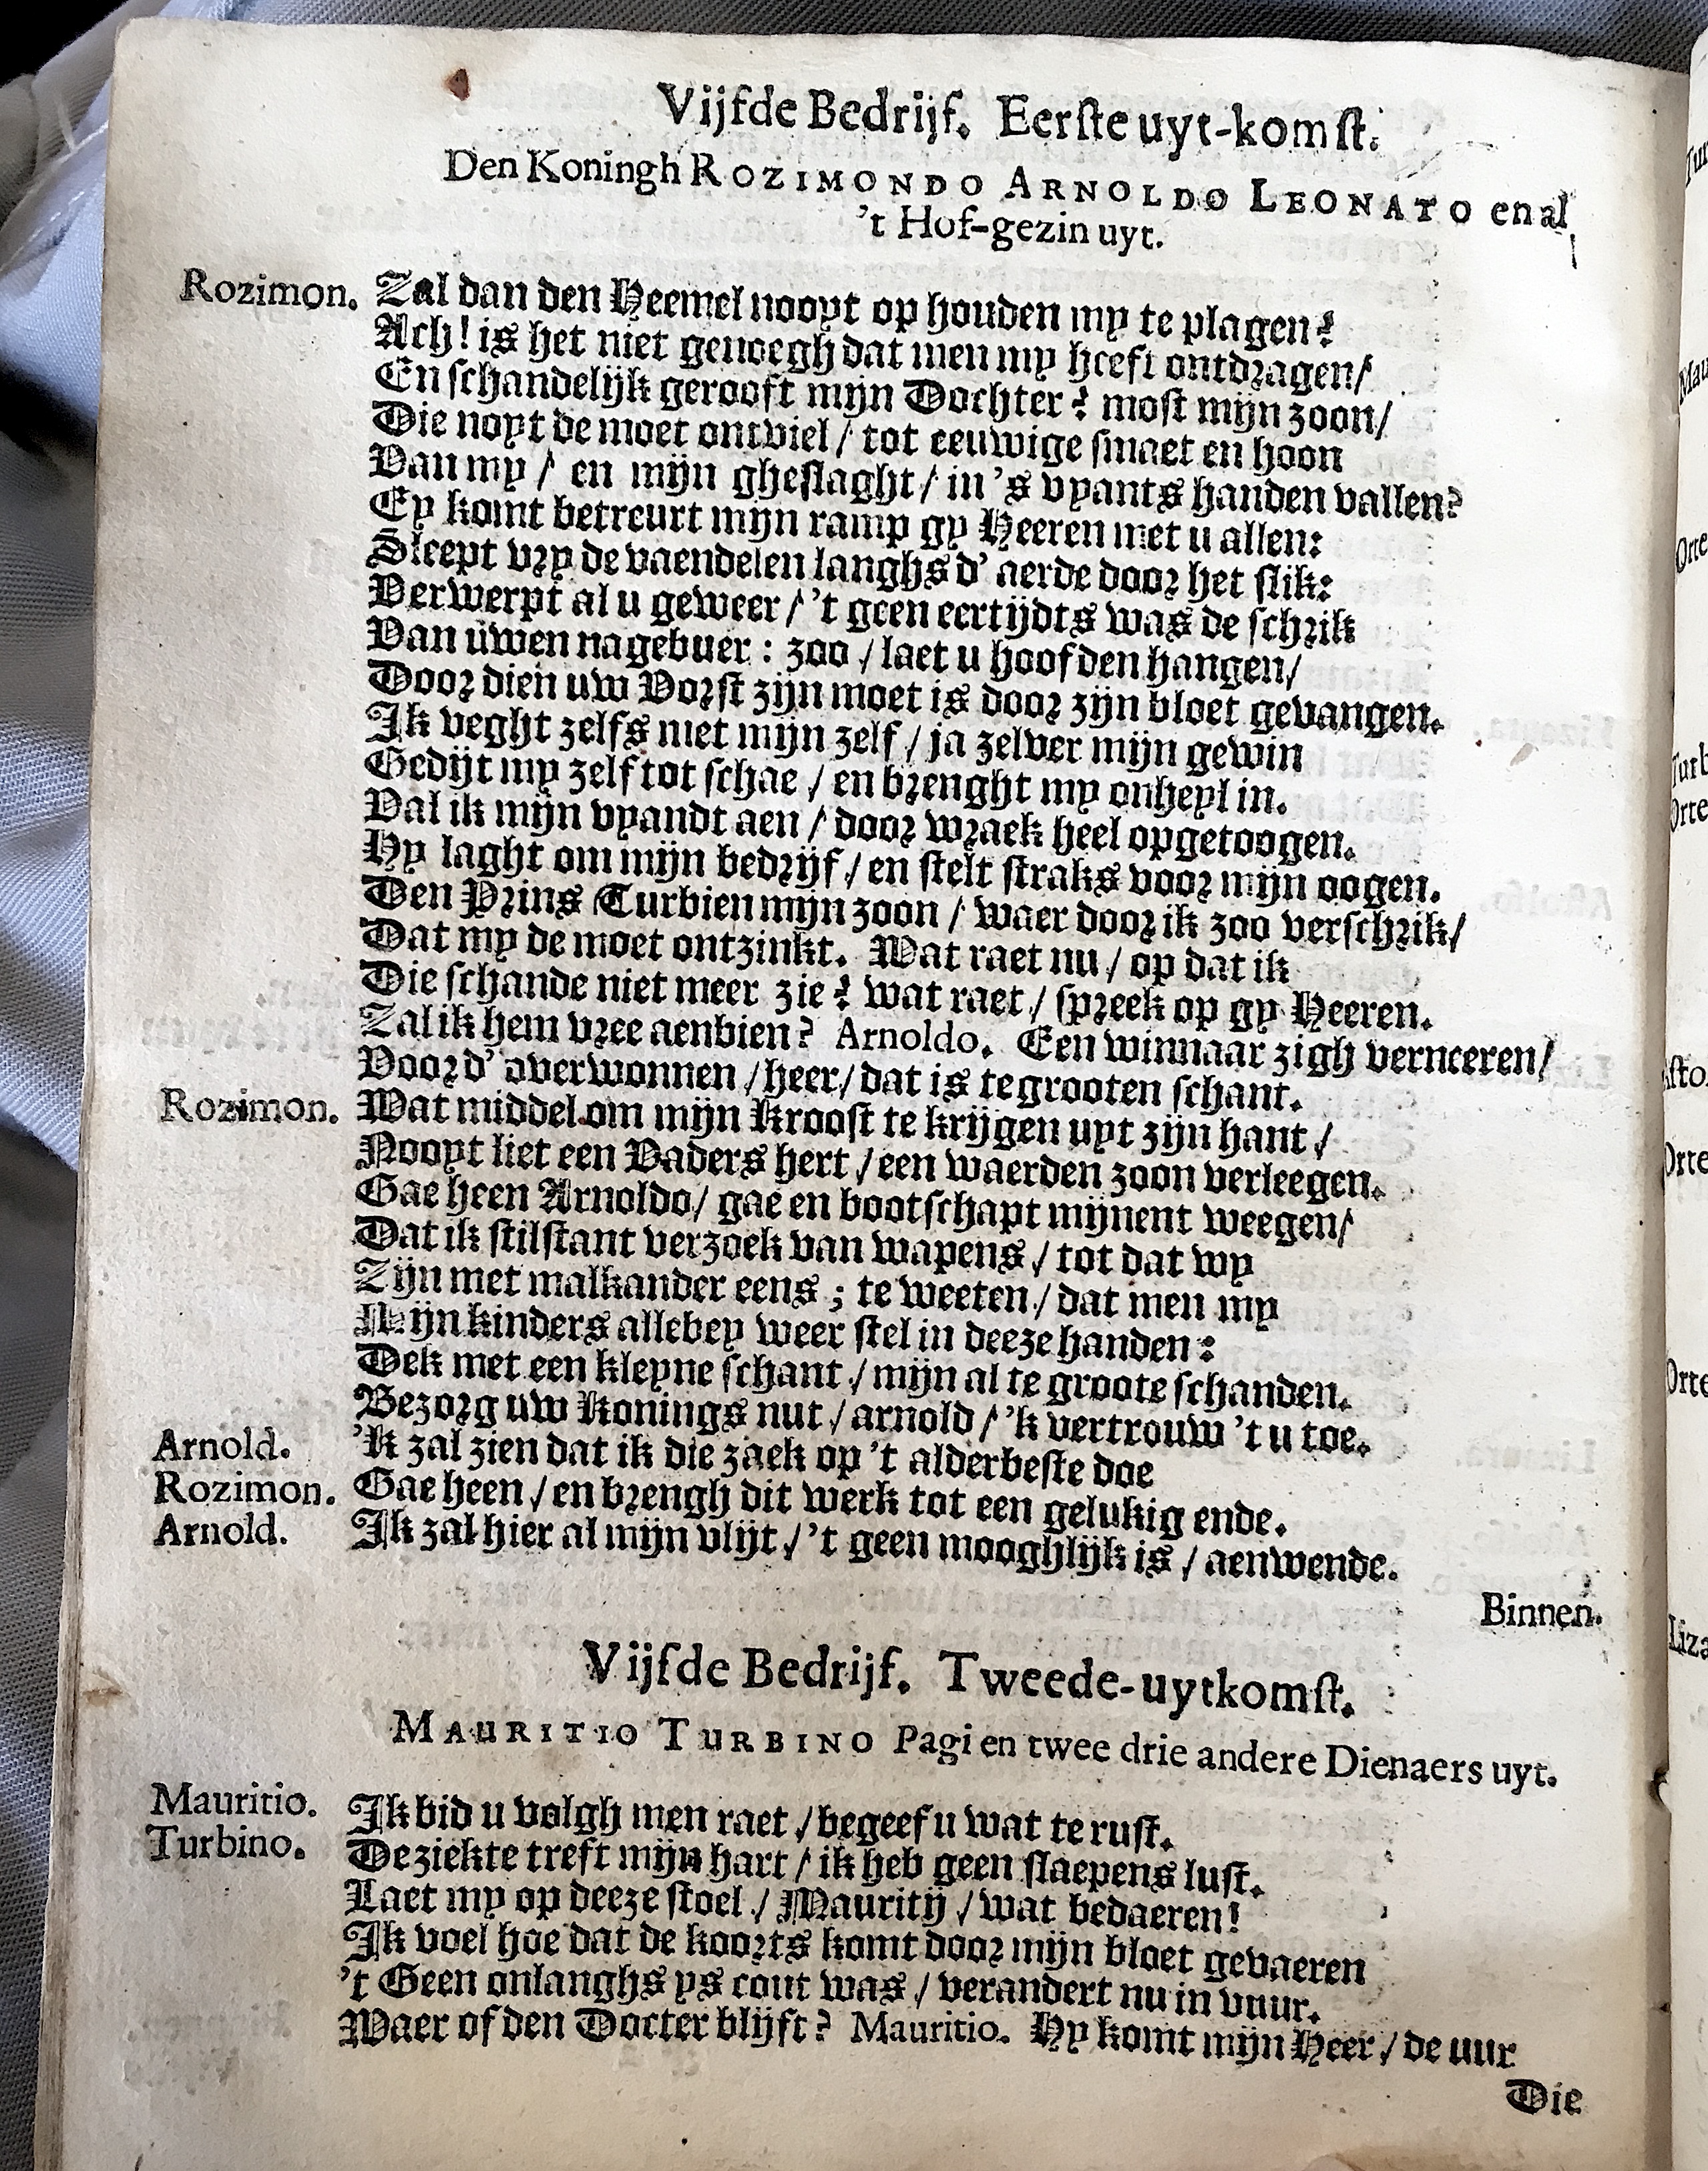 Vijfde Bedrijf. Eerste uyt-komst.
Den Koningh ROZIMONDO ARNOLDO LEONATO en al
't Hof-gezin uyt.
Rozimon. Zal dan den Heemel nooyt op houden my te plagen?
Ach! is het niet genoegh dat men my heeft ontdragen/
En schandelijk gerooft mijn Dochter? most mijn zoon/
Die noyt de moet ontviel/ tot eeuwige smaet en hoon
Van my/ en mijn gheslaght/ in 's vyants handen vallen?
Ey komt betreurt mijn ramp gy Heeren met u allen:
Sleept vry de vaendelen langhs d' aerde door het slik:
Verwerpt al u geweer/ 't geen eertijdts was de schrik
Van uwen nagebuer: zoo/ laet u hoofden hangen/
Door dien uw Vorst zijn moet is door zijn bloet gevangen.
Ik veght zelfs met mijn zelf/ ja zelver mijn gewin
Gedijt my zelf tot schae/ en brenght my onheyl in.
Val ik mijn vyandt aen/ door wraek heel opgetoogen.
Hy laght om mijn bedrijf/ en stelt straks voor mijn oogen.
Den Prins Turbien mijn zoon/ waer door ik zoo verschrik/
Dat my de moet ontzinkt. Wat raet nu/ op dat ik
Die schande niet meer zie? wat raet/ spreek op gy Heeren.
Zal ik hem vree aenbien? Arnoldo. Een winnaar zigh verneeren/
Voor d' overwonnen/ heer/ dat is te grooten schant.
Rozimon. Wat middel om mijn Kroost te krijgen uyt zijn hant/
Nooyt liet een Vaders hert/ een waerden zoon verleegen.
Gae heen Arnoldo/ gae en bootschapt mijnent weegen/
Dat ik stilstant verzoek van wapens/ tot dat wy
Zijn met malkander eens; te weeten/ dat men my
Mijn kinders allebey weer stel in deeze handen:
Dek met een kleyne schant/ mijn al te groote schanden.
Bezorg uw Konings nut/ arnold/ 'k vertrouw 't u toe.
Arnold. 'K zal zien dat ik die zaek op 't alderbeste doe
Rozimon. Gae heen/ en brengh dit werk tot een gelukig ende.
Arnold. Ik zal hier al mijn vlijt/ 't geen mooghlijk is/ aenwende.
Binnen.
Vijfde Bedrijf. Tweede-uytkomst.
MAURITIO TURBINO Pagi en twee drie andere Dienaers uyt.
Mauritio. Ik bid u volgh men raet/ begeef u wat te rust.
Turbino. De ziekte treft mijn hart/ ik heb geen slaepens lust.
Laet my op deeze stoel/ Mauritij/ wat bedaeren!
Ik voel hoe dat de koorts komt door mijn bloet gevaeren
't Geen onlanghs ys cout was/ verandert nu in vuur.
Waer of den Docter blijft? Mauritio. Hy komt mijn Heer/ de uur
Die